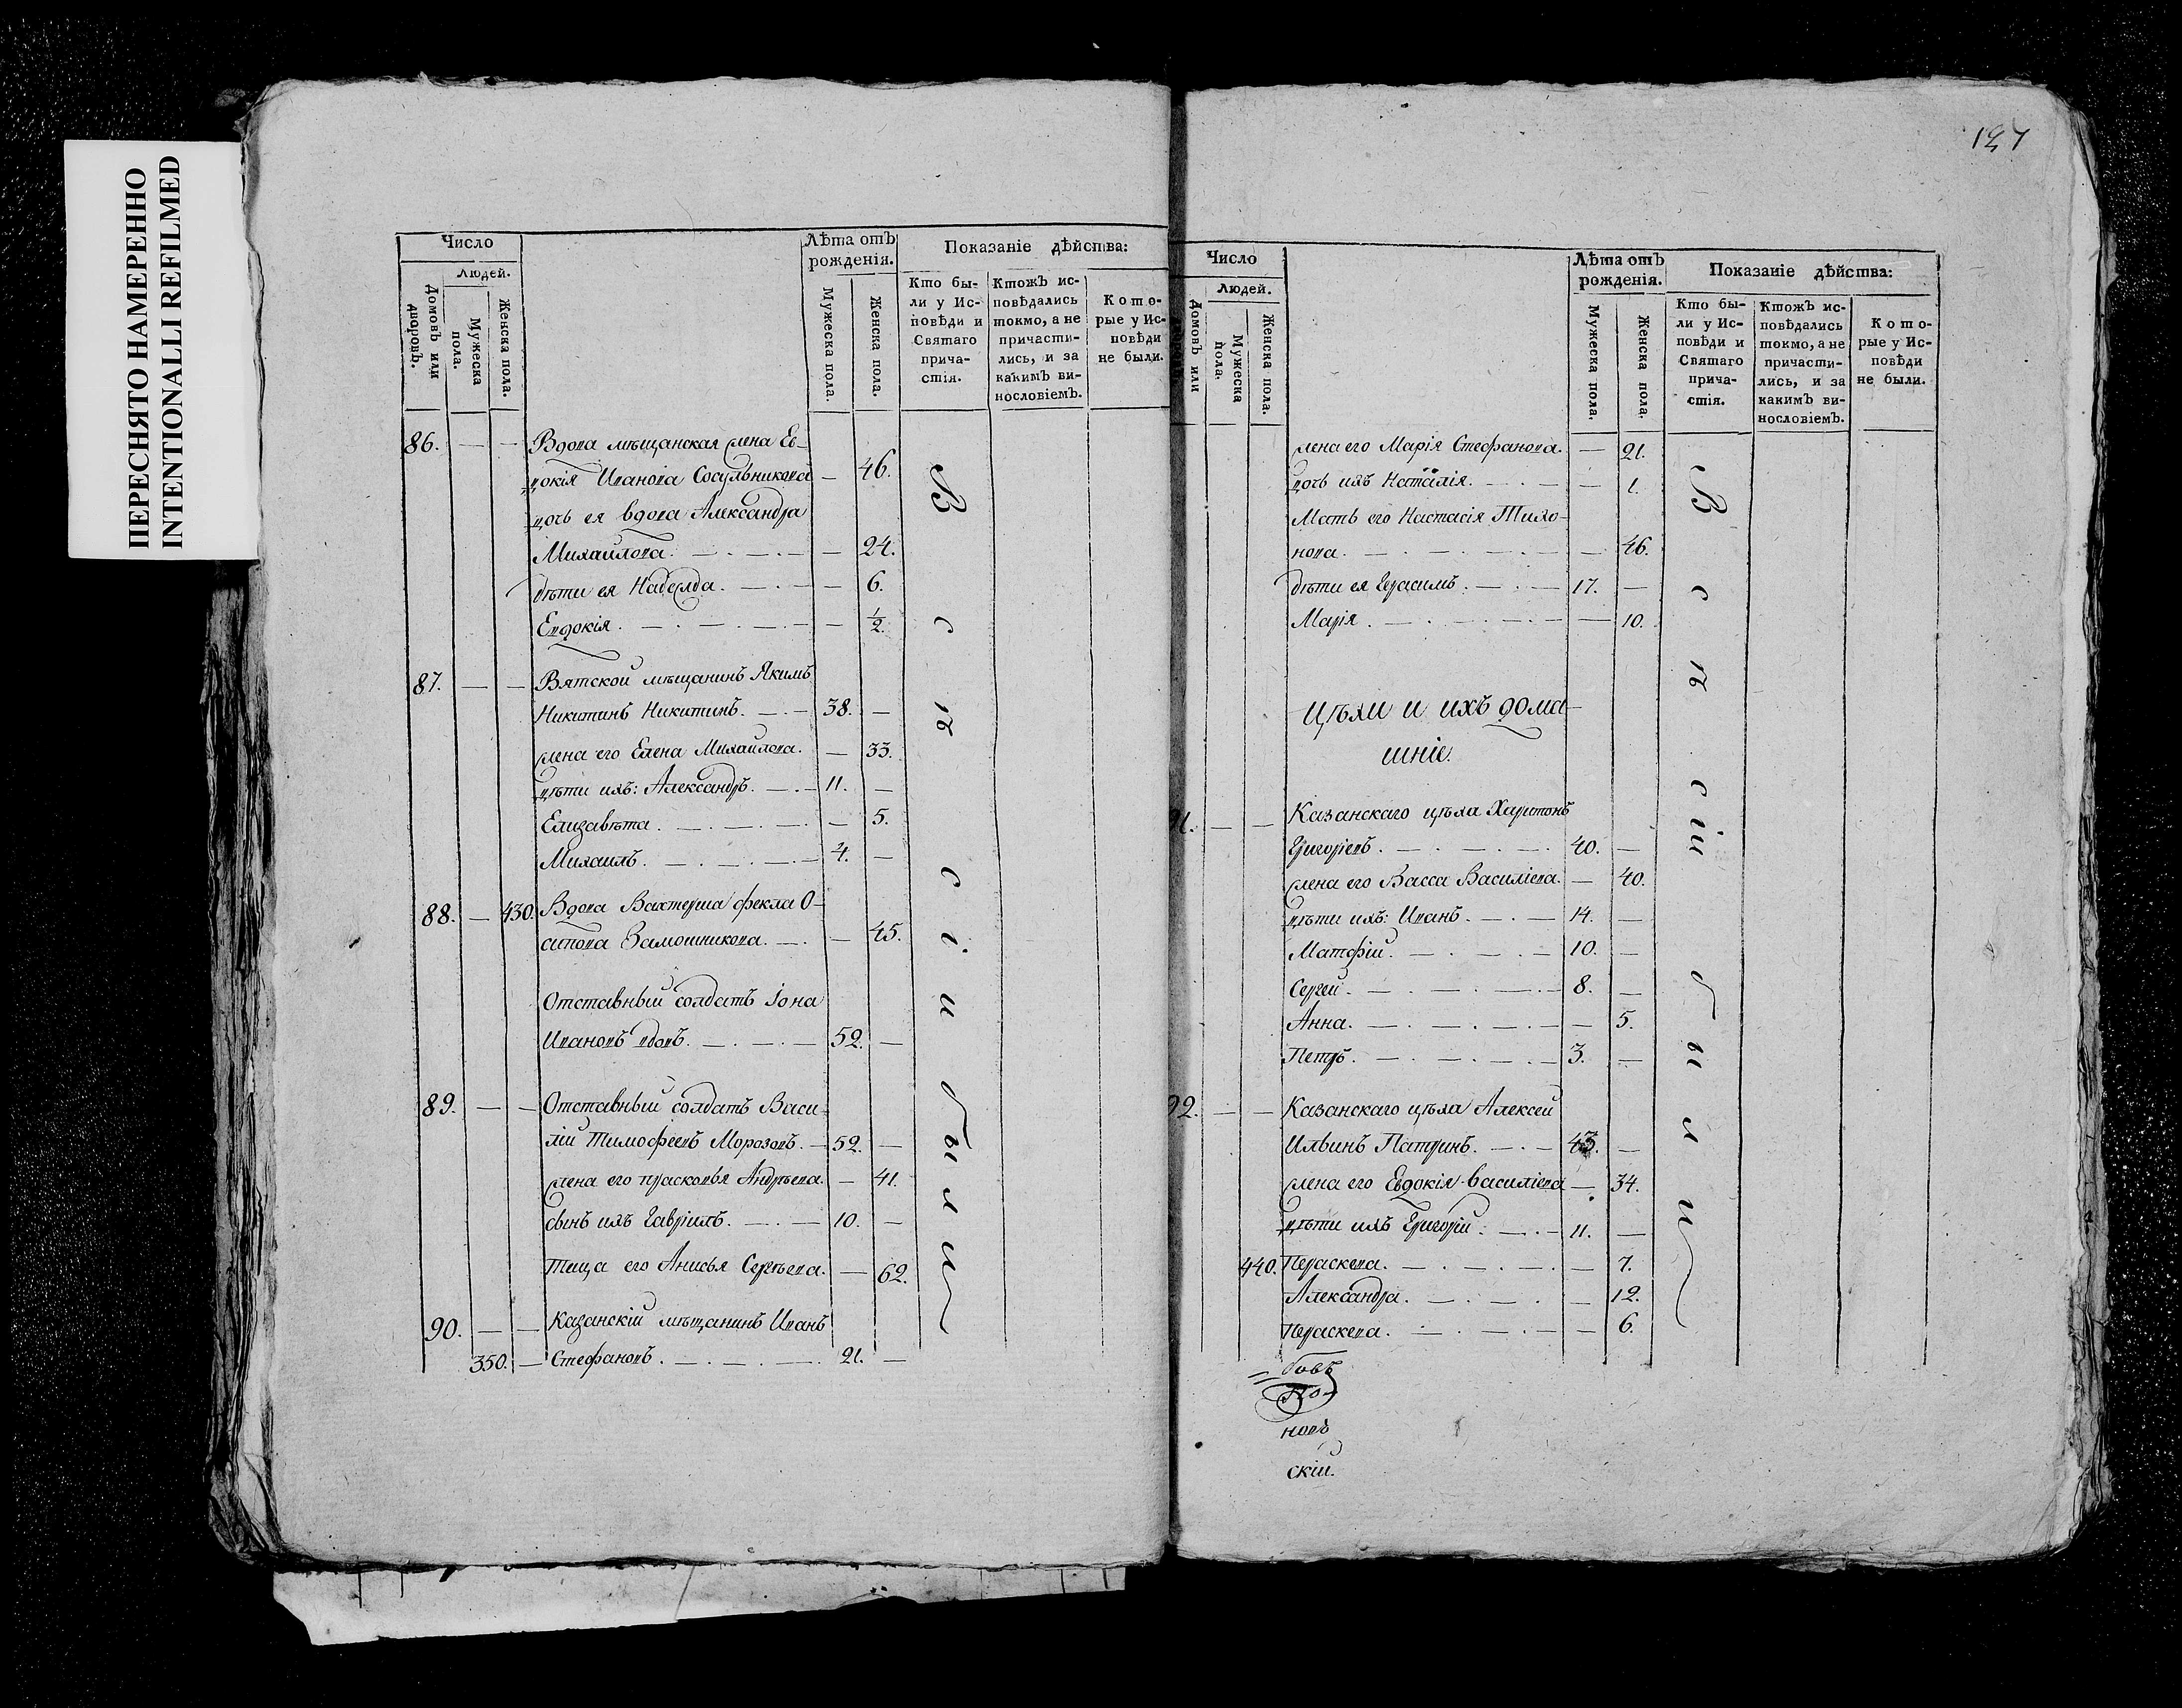 ПЕРЕСНЯТО НАМЕРЕННО
INTENTIONALLI REFILMED
Число
Людей.
Домовъ или дворовъ.
Мужеска пола.
Женска пола.
Лѣта отъ рожденія.
Мужеска пола.
Женска пола.
Показаніе дѣйства:
Кто были у Исповѣди и Святаго причастія.
Ктожъ исповѣдались токмо, а не причастились, и за какимъ винословіемъ.
Которые у Исповѣди не были.
86. — — Вдова мѣщанская жена Ев-
докія Иванова Сосульникова — 46.
дочь ея вдова Александра
Михайлова. — 24.
дѣти ея Надежда. — 6.
Евдокія. — 1/2.
87. — — Вятской мѣщанинъ Якимъ
Никитинъ Никитинъ. 38. —
жена его Елена Михайлова. — 33.
дѣти ихъ: Александръ. 11. —
Елизавета. — 5.
Михаилъ. 4. —
88. — 430. Вдова Вахтерша Фекла О-
сипова Замошникова. — 45.
Отставный солдатъ Іона
Ивановъ вдовъ. 52. —
89. — — Отставный солдатъ Васи-
лій Тимофеевъ Морозовъ. 52. —
жена его Прасковья Андрѣева. — 41.
сынъ ихъ Гавріилъ. 10. —
Теща его Анисья Сергѣева. — 62.
90. — — Казанскій мѣщанинъ Иванъ
350. — Стефановъ. 21. —
Всѣ сіи были
127
Число
Людей.
Домовъ или
Мужеска пола.
Женска пола.
Лѣта отъ рожденія.
Мужеска пола.
Женска пола.
Показаніе дѣйства:
Кто были у Исповѣди и Святаго причастія.
Ктожъ исповѣдались токмо, а не причастились, и за какимъ винословіемъ.
Которые у Исповѣди не были.
жена его Марія Стефанова. — 21.
дочь ихъ Наталія. — 1.
Мать его Настасія Тихо-
нова. — 46.
дѣти ея Герасимъ. 17. —
Марія. — 10.
Цѣхи и ихъ дома-
шніе.
91. — — Казанскаго цѣха Харитонъ
Григорьевъ. 40. —
жена его Васса Василіева. — 40.
дѣти ихъ: Иванъ. 14. —
Матфій. 10. —
Сергей. 8. —
Анна. — 5.
Петръ. 3. —
92. — — Казанскаго цѣха Алексей
Ильинъ Патринъ. 43. —
жена его Евдокія Василіева — 34.
дѣти ихъ Григорій. 11. —
440. Параскева. — 7.
Александра. — 12.
Параскева. — 6.
Всѣ сіи были
новъ
скій.